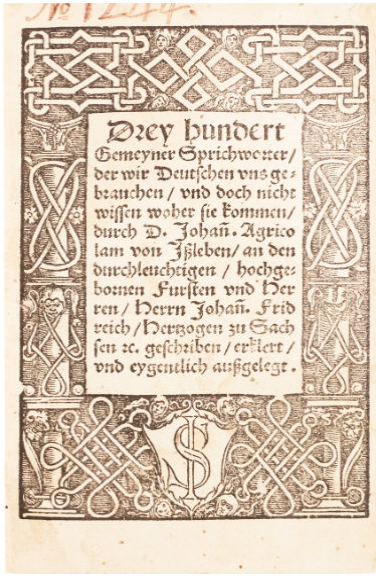 No 1244.
Drey hundert
Gemeyner Sprichworter/
der wir Deutschen vns ge-
brauchen/ vnd doch nicht
wissen woher sie kommen/
durch D. Johañ. Agrico
lam von Jßleben/ an den
durchleuchtigen/ hochge-
bornen Fursten vnd Her
ren/ Herrn Johañ. Frid
reich/ Hertzogen zu Sach
sen ꝛc. geschriben/ erklert/
vnd eygentlich außgelegt.